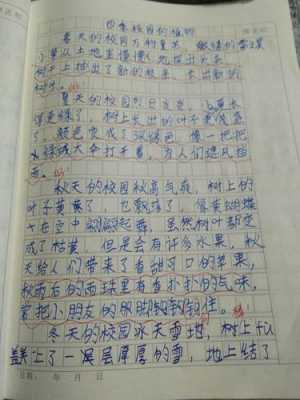 四季校园的植物
春天的校园万物复苏,嫩绿的小草
从土地里慢慢地探出头来
树干上抽出了新的枝条,长出嫩的
树叶。
夏天的校园烈日炎炎,小草长
得更绿了,树上长出的叶子更茂盛
了,颜色变成了深绿色,像一把把
绿绒大伞打开着,为人们遮风挡
雨。
秋天的校园秋高气爽,树上的
叶子黄黄了,也飘落了,像黄蝴蝶
在空中翩翩起舞,虽然树叶都变
成了枯黄,但是会有许多水果,秋
天给人们带来了香甜可口的苹果,
秋雨后的校园里有香扑扑的气味,
常把小朋友的脚勾住。
冬天的校园冰天雪地,树上
盖上了一层层厚厚的雪,地上结了
日期: 年 月 日